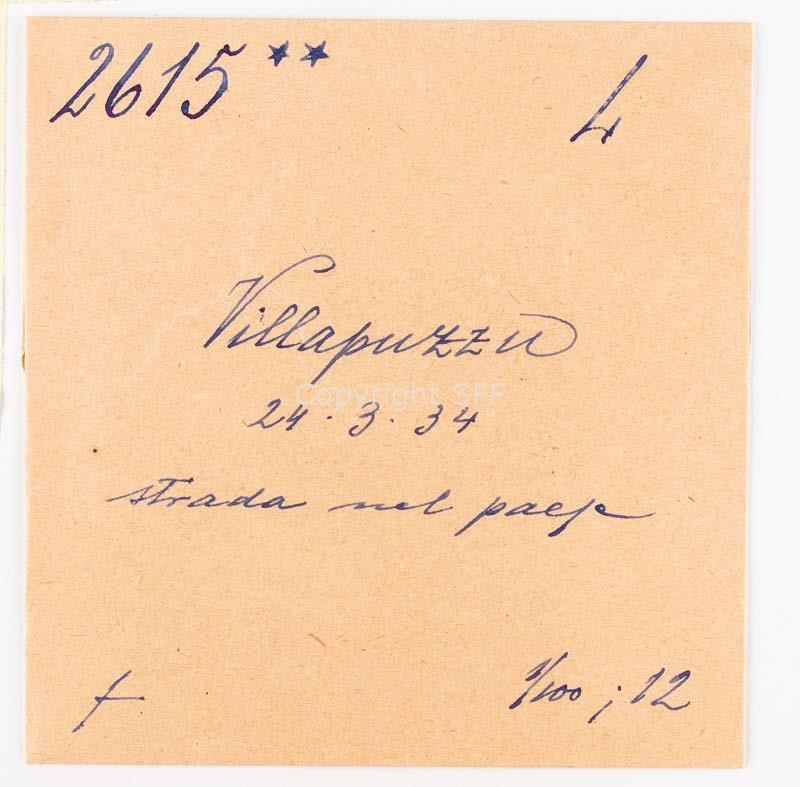 2615** L
Villapuzzu
Copyright SFF
24.3.34
strada nel paese
+ 1/100 ; 12